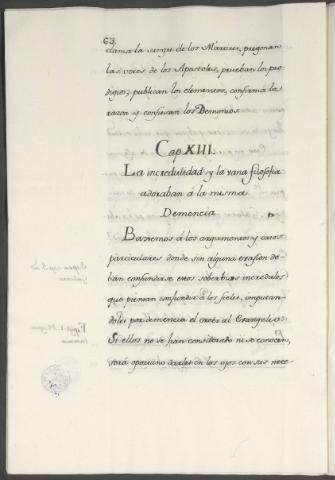 63.
clama la sangre de los Martires, pregonan
las voces de los Apostoles, prueban los pro-
digios, publican los elementos, confirma la
razon y confiesan los Demonios.
Cap XIII.
La incredulidad y la vana filosofia
adoraban á la misma
Demencia
Basemos á los argumentos y casos
particulares donde sin alguna evasion de-
ban confundirse estos soberbios incredulos
que piensan confundir á los fieles, imputan-
doles por demencia el creér al Evangelio.
Si ellos no se han considerado ni se conocen,
será oportuno darles en los ojos con sus nece-